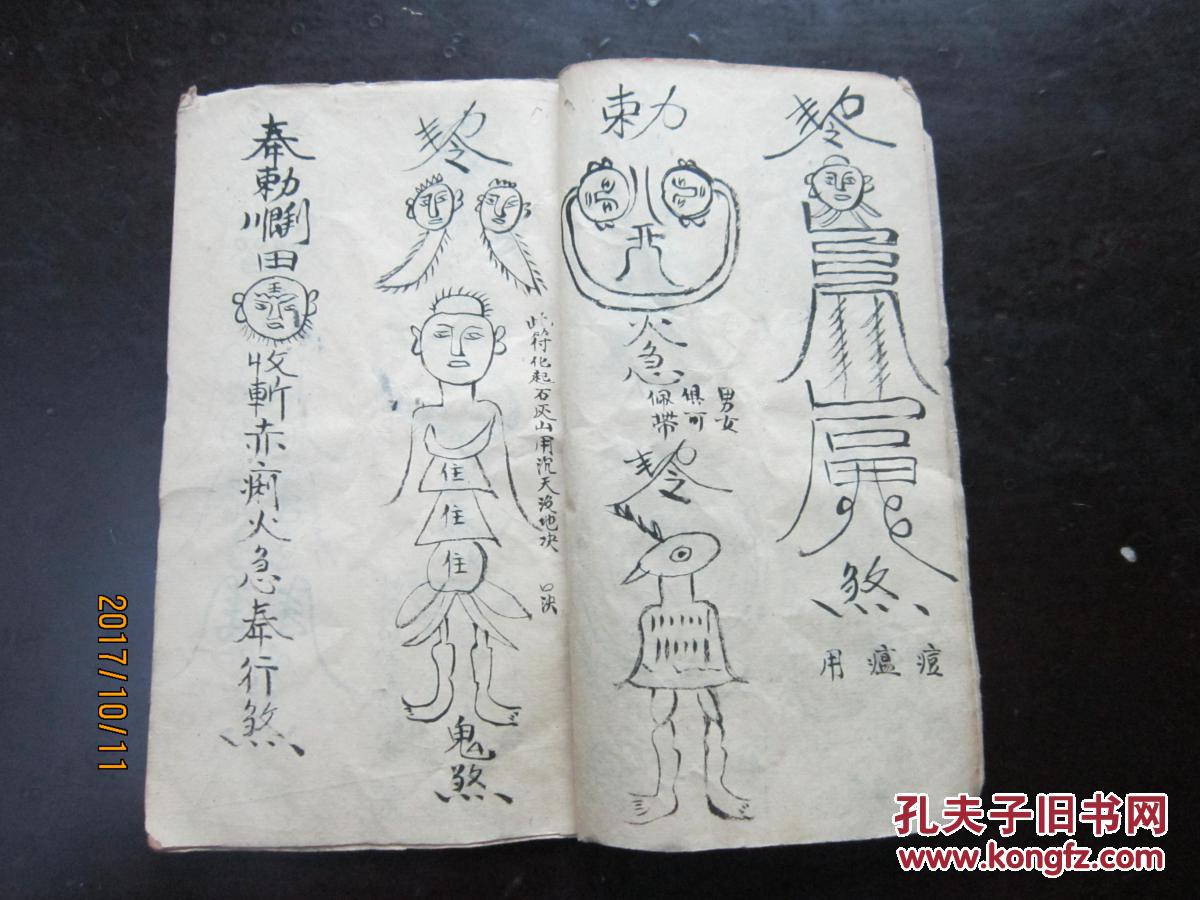 煞
痘
瘟
用
勅
火急
男女
俱可
佩带
此符化起石灰山用沉天没地决
口决
住
住
住
鬼煞
奉勅
田
收斬赤痢火急奉行煞
2017/10/11
孔夫子旧书网
www.kongfz.com